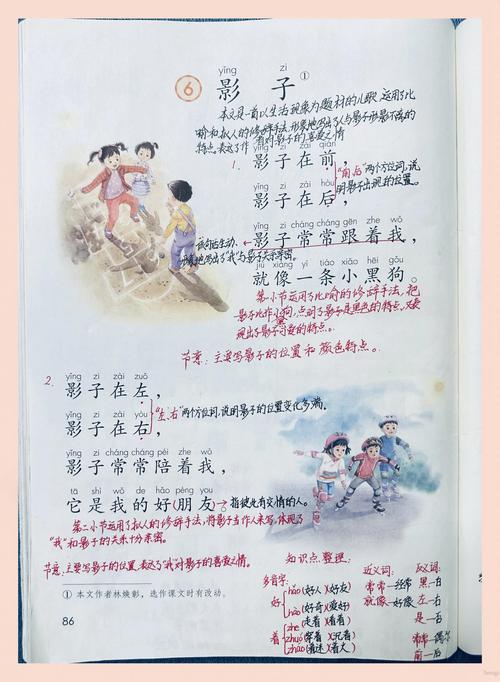 yǐng zi
6 影 子 ①
本文是一首以生活现象为题材的儿歌,运用了比
喻和拟人的修辞手法,形象地写出了人与影子形影不离的
特点,表达了作者对影子的喜爱之情
1.
yǐng zi zài qián
影子在前,
yǐng zi zài hòu
影子在后,
“前、后”两个方位词,说
明影子出现的位置。
yǐng zi cháng cháng gēn zhe wǒ
影子常常跟着我,
写出了“我”与影子关系亲密。
jiù xiàng yì tiáo xiǎo hēi gǒu
就像一条小黑狗。
第一小节运用了比喻的修辞手法,把
影子比作小狗,点明了影子是黑色的特点,又表
现出了影子可爱的特点。
节意:主要写影子的位置和颜色特点。
2.
yǐng zi zài zuǒ
影子在左,
yǐng zi zài yòu
影子在右,
“左、右”两个方位词,说明影子的位置变化多端。
yǐng zi cháng cháng péi zhe wǒ
影子常常陪着我,
tā shì wǒ de hǎo péng you
它是我的好朋友。
→指彼此有交情的人。
第二小节运用了拟人的修辞手法,将影子当作人来写,体现了
“我”和影子的关系十分亲密。
节意:主要写影子的位置,表达了“我”对影子的喜爱之情。
① 本文作者林焕彰,选作课文时有改动。
86
知识点整理:
多音字:
好
hǎo(好人)(好友)
hào(好奇)(爱好)
着
zhe(走着)(看着)
zhuó(穿着)(沉着)
zháo(着迷)(着火)
近义词:
常常—经常
就像—好像
反义词:
黑—白
左—右
是—否
常常—偶尔
前—后